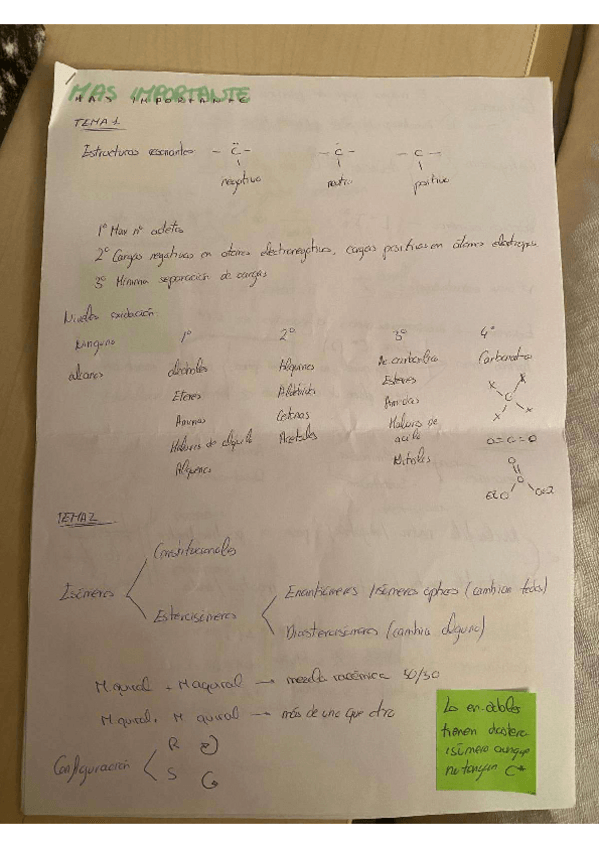 MAS IMPORTANTE
MAS IMPORTANTE
TEMA 1
Estructuras resonantes - C̈ - - Ċ - - C -
negativo neutro positivo
1º Max nº octetos
2º Cargas negativas en átomos electronegativos, cargas positivas en átomos
3º Mínima separación de cargas
Niveles oxidación:
Ninguno 1º 2º 3º 4º
alcanos alcoholes Alquinos Ac carboxílico Carbonatos
Eteres Aldehídos Esteres
Aminas Cetonas Amidas
Haluros de alquilo Acetales Haluros de acilo
Alquenos Nitrilos
X X C X X
O=C=O
O
C
EtO
TEMA 2
Constitucionales
Isómeros
Estereoisómeros
Enantiómeros / isómeros ópticos (cambian todos)
Diastereoisómeros (cambia alguno)
M. quiral + M aquiral → mezcla racémica 50/50
M. quiral, M quiral → más de uno que otro
Configuración
R
S
Los en-dobles
tienen diastereo
isómero aunque
no tengan C*